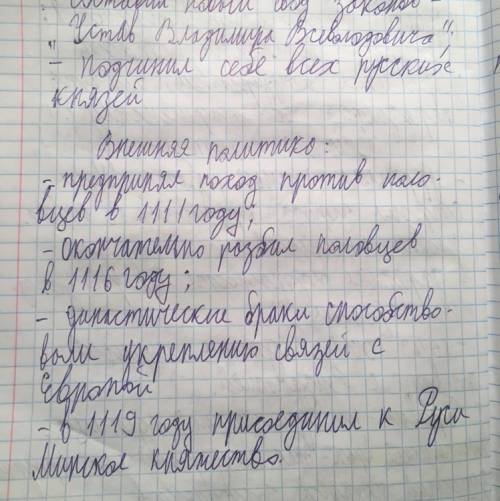 новый свод законов -
"Устав Владимира Всеволодовича";
- подчинил себе всех русских
князей
Внешняя политика:
- предпринял поход против поло-
вцев в 1111 году;
- окончательно разбил половцев
в 1116 году;
- династические браки способство-
вали укреплению связей с
Европой
- в 1119 году присоединил к Руси
Минское княжество.